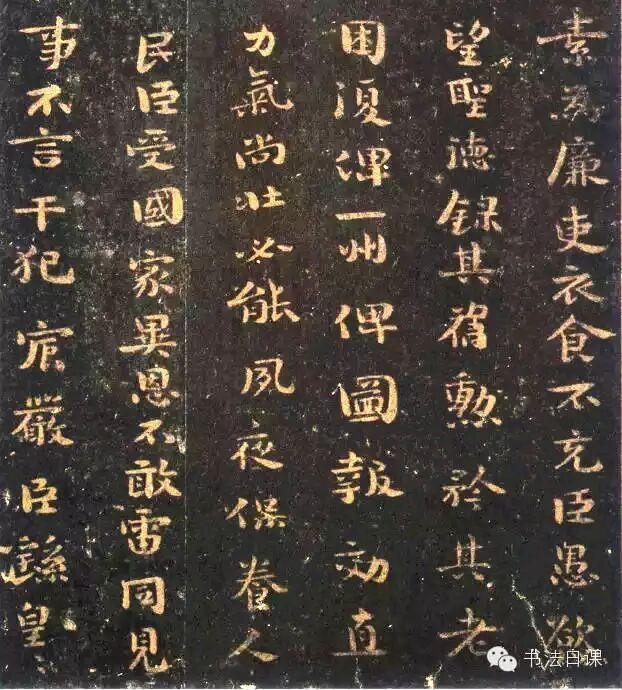 素為廉吏衣食不充臣愚欲
望聖德錄其舊勳矜其老
困復俾一州俾圖報效直
力氣尚壯必能夙夜保養人
民臣受國家異恩不敢雷同見
事不言干犯宸嚴臣繇皇
书法自课